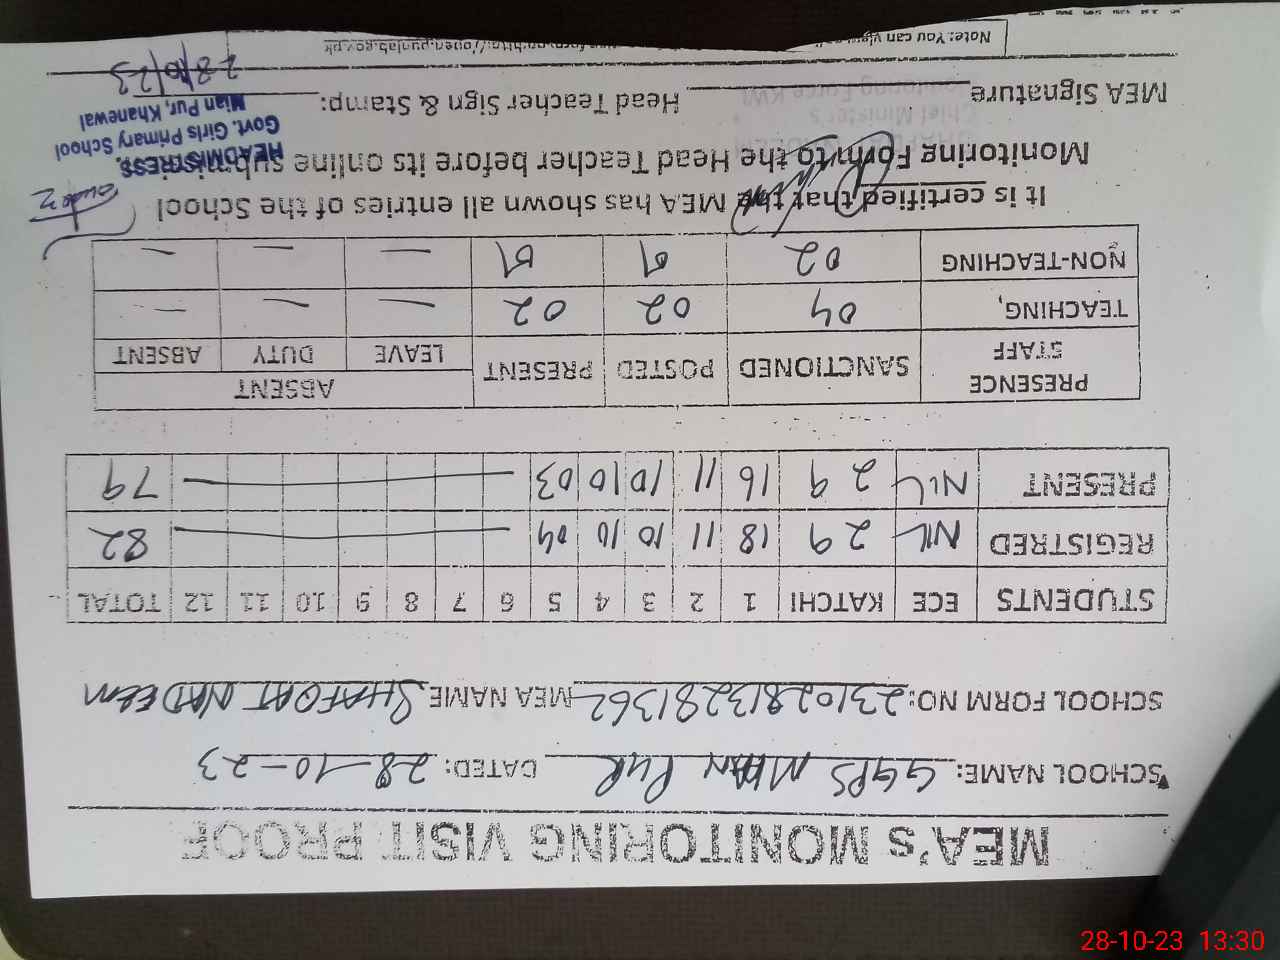 MEA's MONITORING VISIT PROOF
SCHOOL NAME: GGPS MIAN PUR DATED: 28-10-23
SCHOOL FORM NO: 23102813281362 MEA NAME SHAFQAT NADEEM
STUDENTS ECE KATCHI 1 2 3 4 5 6 7 8 9 10 11 12 TOTAL
REGISTRED NIL 29 18 11 10 10 04 82
PRESENT NIL 29 16 11 10 10 03 79
PRESENCE STAFF SANCTIONED POSTED PRESENT ABSENT
LEAVE DUTY ABSENT
TEACHING, 04 02 02 — — —
NON-TEACHING 02 01 01 — — —
It is certified that the MEA has shown all entries of the School
Monitoring Form to the Head Teacher before its online submission.
HEADMISTRESS
Govt. Girls Primary School
Mian Pur, Khanewal
28/10/23
Chief Minister's
Monitoring Force KWL
MEA Signature Head Teacher Sign & Stamp:
Note: You can view http://open.punjab.gov.pk
28-10-23 13:30